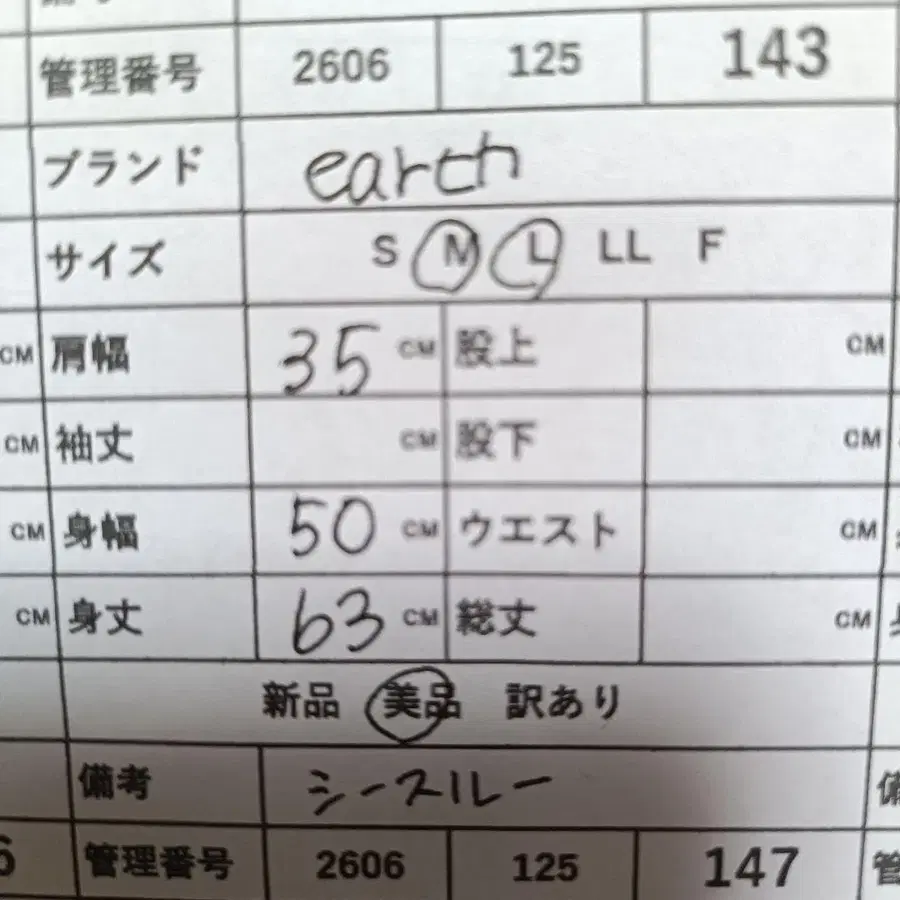 管理番号 2606 125 143
ブランド earth
サイズ S M L LL F
CM 肩幅 35 CM 股上 CM
CM 袖丈 CM 股下 CM
CM 身幅 50 CM ウエスト CM
CM 身丈 63 CM 総丈 CM
新品 美品 訳あり
備考 シースルー
管理番号 2606 125 147